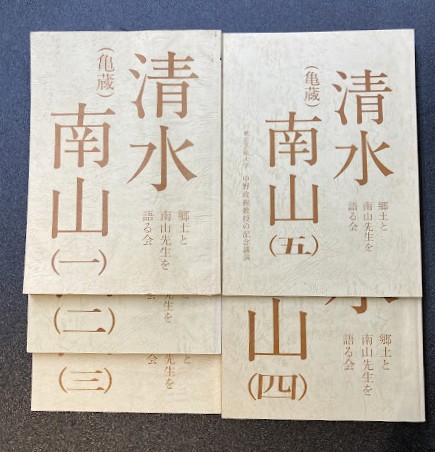 清水
(亀蔵)
南山(一)
郷土と
南山先生を
語る会
清水
(亀蔵)
南山(五)
郷土と
南山先生を
語る会
(二)
と
先生を
会
(三)
と
先生を
会
水
山(四)
郷土と
南山先生を
語る会